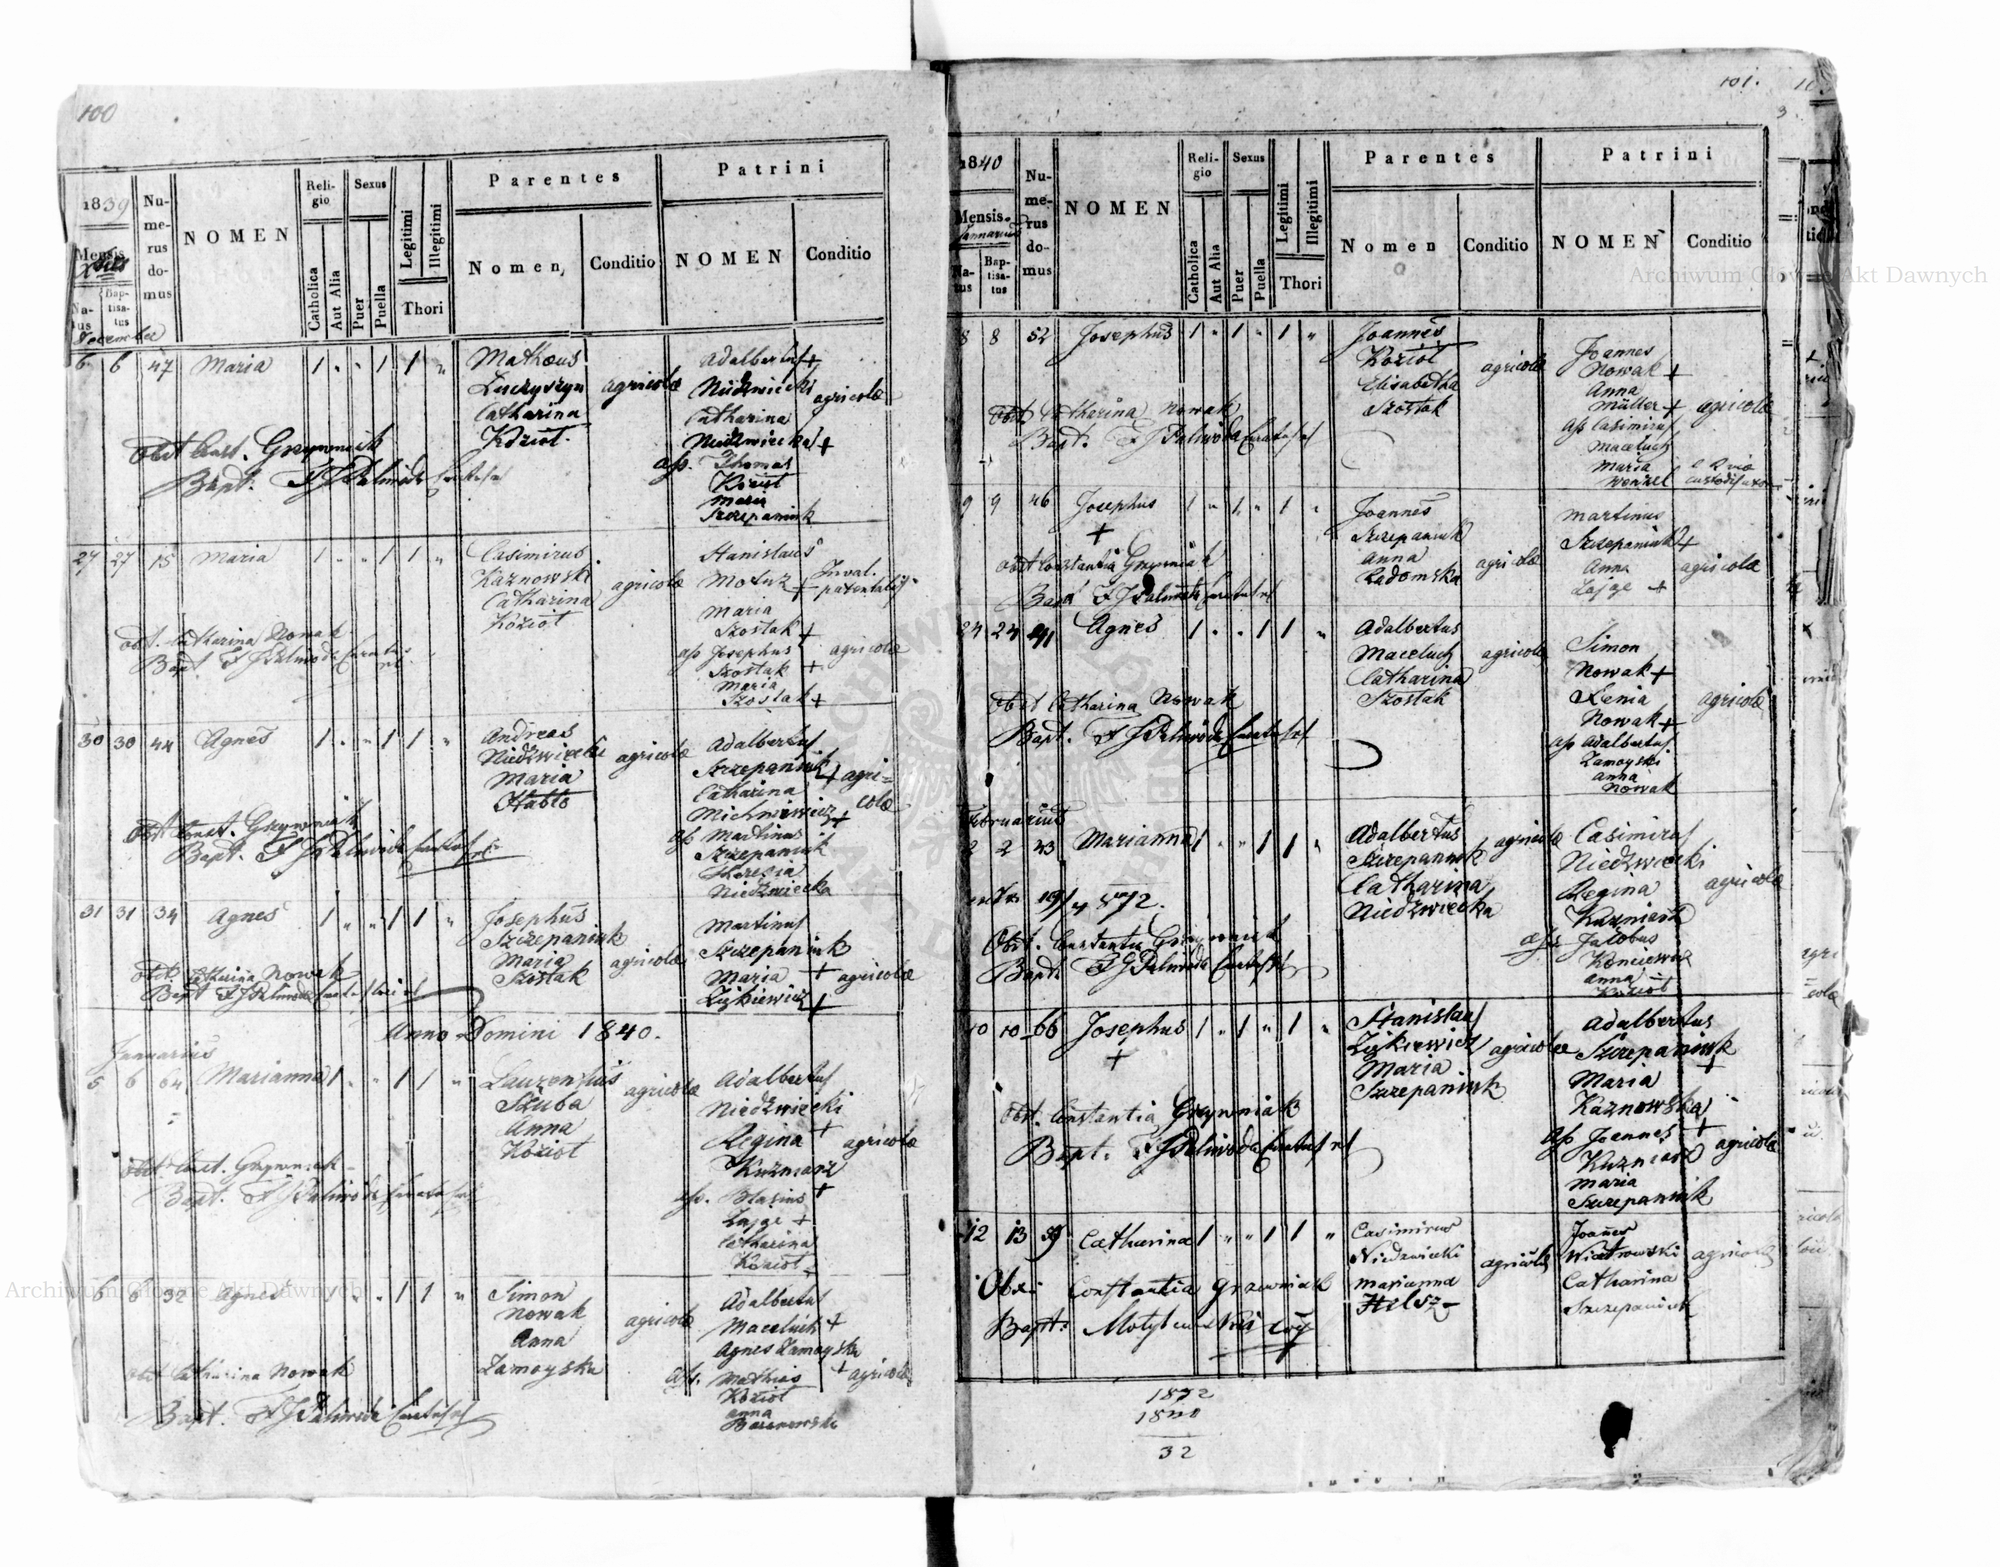 100
1839
Mensis
Xbris
Na-
tus
Bap-
tisa-
tus
December
Nu-
me-
rus
do-
mus
NOMEN
Reli-
gio
Catholica
Aut Alia
Sexus
Puer
Puella
Legitimi
Illegitimi
Thori
Parentes
Nomen
Conditio
Patrini
NOMEN
Conditio
6 6 47 Maria 1 " " 1 1 "
Mathæus
Catharina
Kozioł
agricolæ
Adalbertus +
Niedzwiecki
Catharina
Niedzwiecka +
ass. Thomas
Kozioł
Maria
Szczepaniuk
agricolæ
Obst. Const. Grzywniak
Bapt. F J Paliwoda Curatus
27 27 15 Maria 1 " " 1 1 "
Casimirus
Kaznowski
Catharina
Kozioł
agricolæ
Stanislaus
Motuz +
Maria
Szostak +
ass Josephus
Szostak +
Maria
Szostak +
Inval.
patentalis
agricolæ
obst. Catharina Nowak
Bapt F J Paliwoda Curatus
30 30 44 Agnes 1 " " 1 1 "
Andreas
Niedzwiecki
Maria
agricolæ
Adalbertus
Szczepaniuk +
Catharina
Michniewicz +
ass Martinus
Szczepaniuk
Theresia
Niedzwiecka
agri=
colæ
Obst Const. Grzywniak
Bapt. F J Paliwoda Curatus
31 31 34 Agnes 1 " " 1 1 "
Josephus
Szczepaniuk
Maria
Szostak
agricolæ
Martinus
Szczepaniuk
Maria +
Zyskiewicz +
agricolæ
obst Catharina Nowak
Bapt F J Paliwoda Curatus
Anno Domini 1840.
Januarius
5 6 64 Marianna 1 " " 1 1 "
Laurentius
Szuba
Anna
Kozioł
agricolæ
Adalbertus
Niedzwiecki
Regina +
Kuzniarz
ass. Blasius +
Zajge +
Catharina
Kozioł
agricolæ
obst. Const. Grzywniak
Bapt. F J Paliwoda Curatus
6 6 32 Agnes " " 1 1 "
Simon
Nowak
Anna
Zamoyska
agricolæ
Adalbertus
Maceluch +
Agnes Zamoyska
ass. Mathias +
Kozioł
Anna
agricolæ
obst Catharina Nowak
Bapt. F J Paliwoda Curatus
101.
1840
Mensis
Januarius
Na-
tus
Bap-
tisa-
tus
Nu-
me-
rus
do-
mus
NOMEN
Reli-
gio
Catholica
Aut Alia
Sexus
Puer
Puella
Legitimi
Illegitimi
Thori
Parentes
Nomen
Conditio
Patrini
NOMEN
Conditio
8 8 52 Josephus 1 " 1 " 1 "
Joannes
Kozioł
Elisabetha
Szostak
agricolæ
Joannes
Nowak +
Anna
Müller +
ass Casimirus
Maceluch
Maria
Wenzel
agricolæ
Obst Catharina Nowak
Bapt. F J Paliwoda Curatus
9 9 46 Josephus 1 " 1 " 1 "
+
Joannes
Szczepaniuk
Anna
Radomska
agricolæ
Martinus
Szczepaniuk +
Anna
Zajge +
agricolæ
Obst Constantia Grzywniak
Bapt F J Paliwoda Curatus
24 24 41 Agnes 1 " " 1 1 "
Adalbertus
Maceluch
Catharina
Szostak
agricolæ
Simon
Nowak +
Xenia
Nowak +
ass Adalbertus
Zamoyski
Anna
Nowak
agricolæ
Obst Catharina Nowak
Bapt. F J Paliwoda Curatus
Februarius
2 2 43 Marianna 1 " " 1 1 "
Adalbertus
Szczepaniuk
Catharina
Niedzwiecka
agricolæ
Casimirus
Niedzwiecki
Regina
Kuzniarz
ass Jacobus
Anna
Kozioł
agricolæ
Obst. Constantia Grzywniak
Bapt. F J Paliwoda Curatus
10 10 66 Josephus 1 " 1 " 1 "
+
Stanislaus
Zyskiewicz
Maria
Szczepaniuk
agricolæ
Adalbertus
Szczepaniuk +
Maria
Kaznowska +
ass Joannes
Kuzniarz
Maria
Szczepaniuk
agricolæ
obst. Constantia Grzywniak
Bapt. F J Paliwoda Curatus
12 13 59 Catharina 1 " " 1 1 "
Casimirus
Niedzwiecki
Marianna
Hilsz
agricolæ
Joannes
Wiatrowski
Catharina
Szczepaniuk
agricolæ
Obst: Constantia Grzewniak
Bapt:
1872
1840
32
Archiwum Główne Akt Dawnych
Archiwum Główne Akt Dawnych